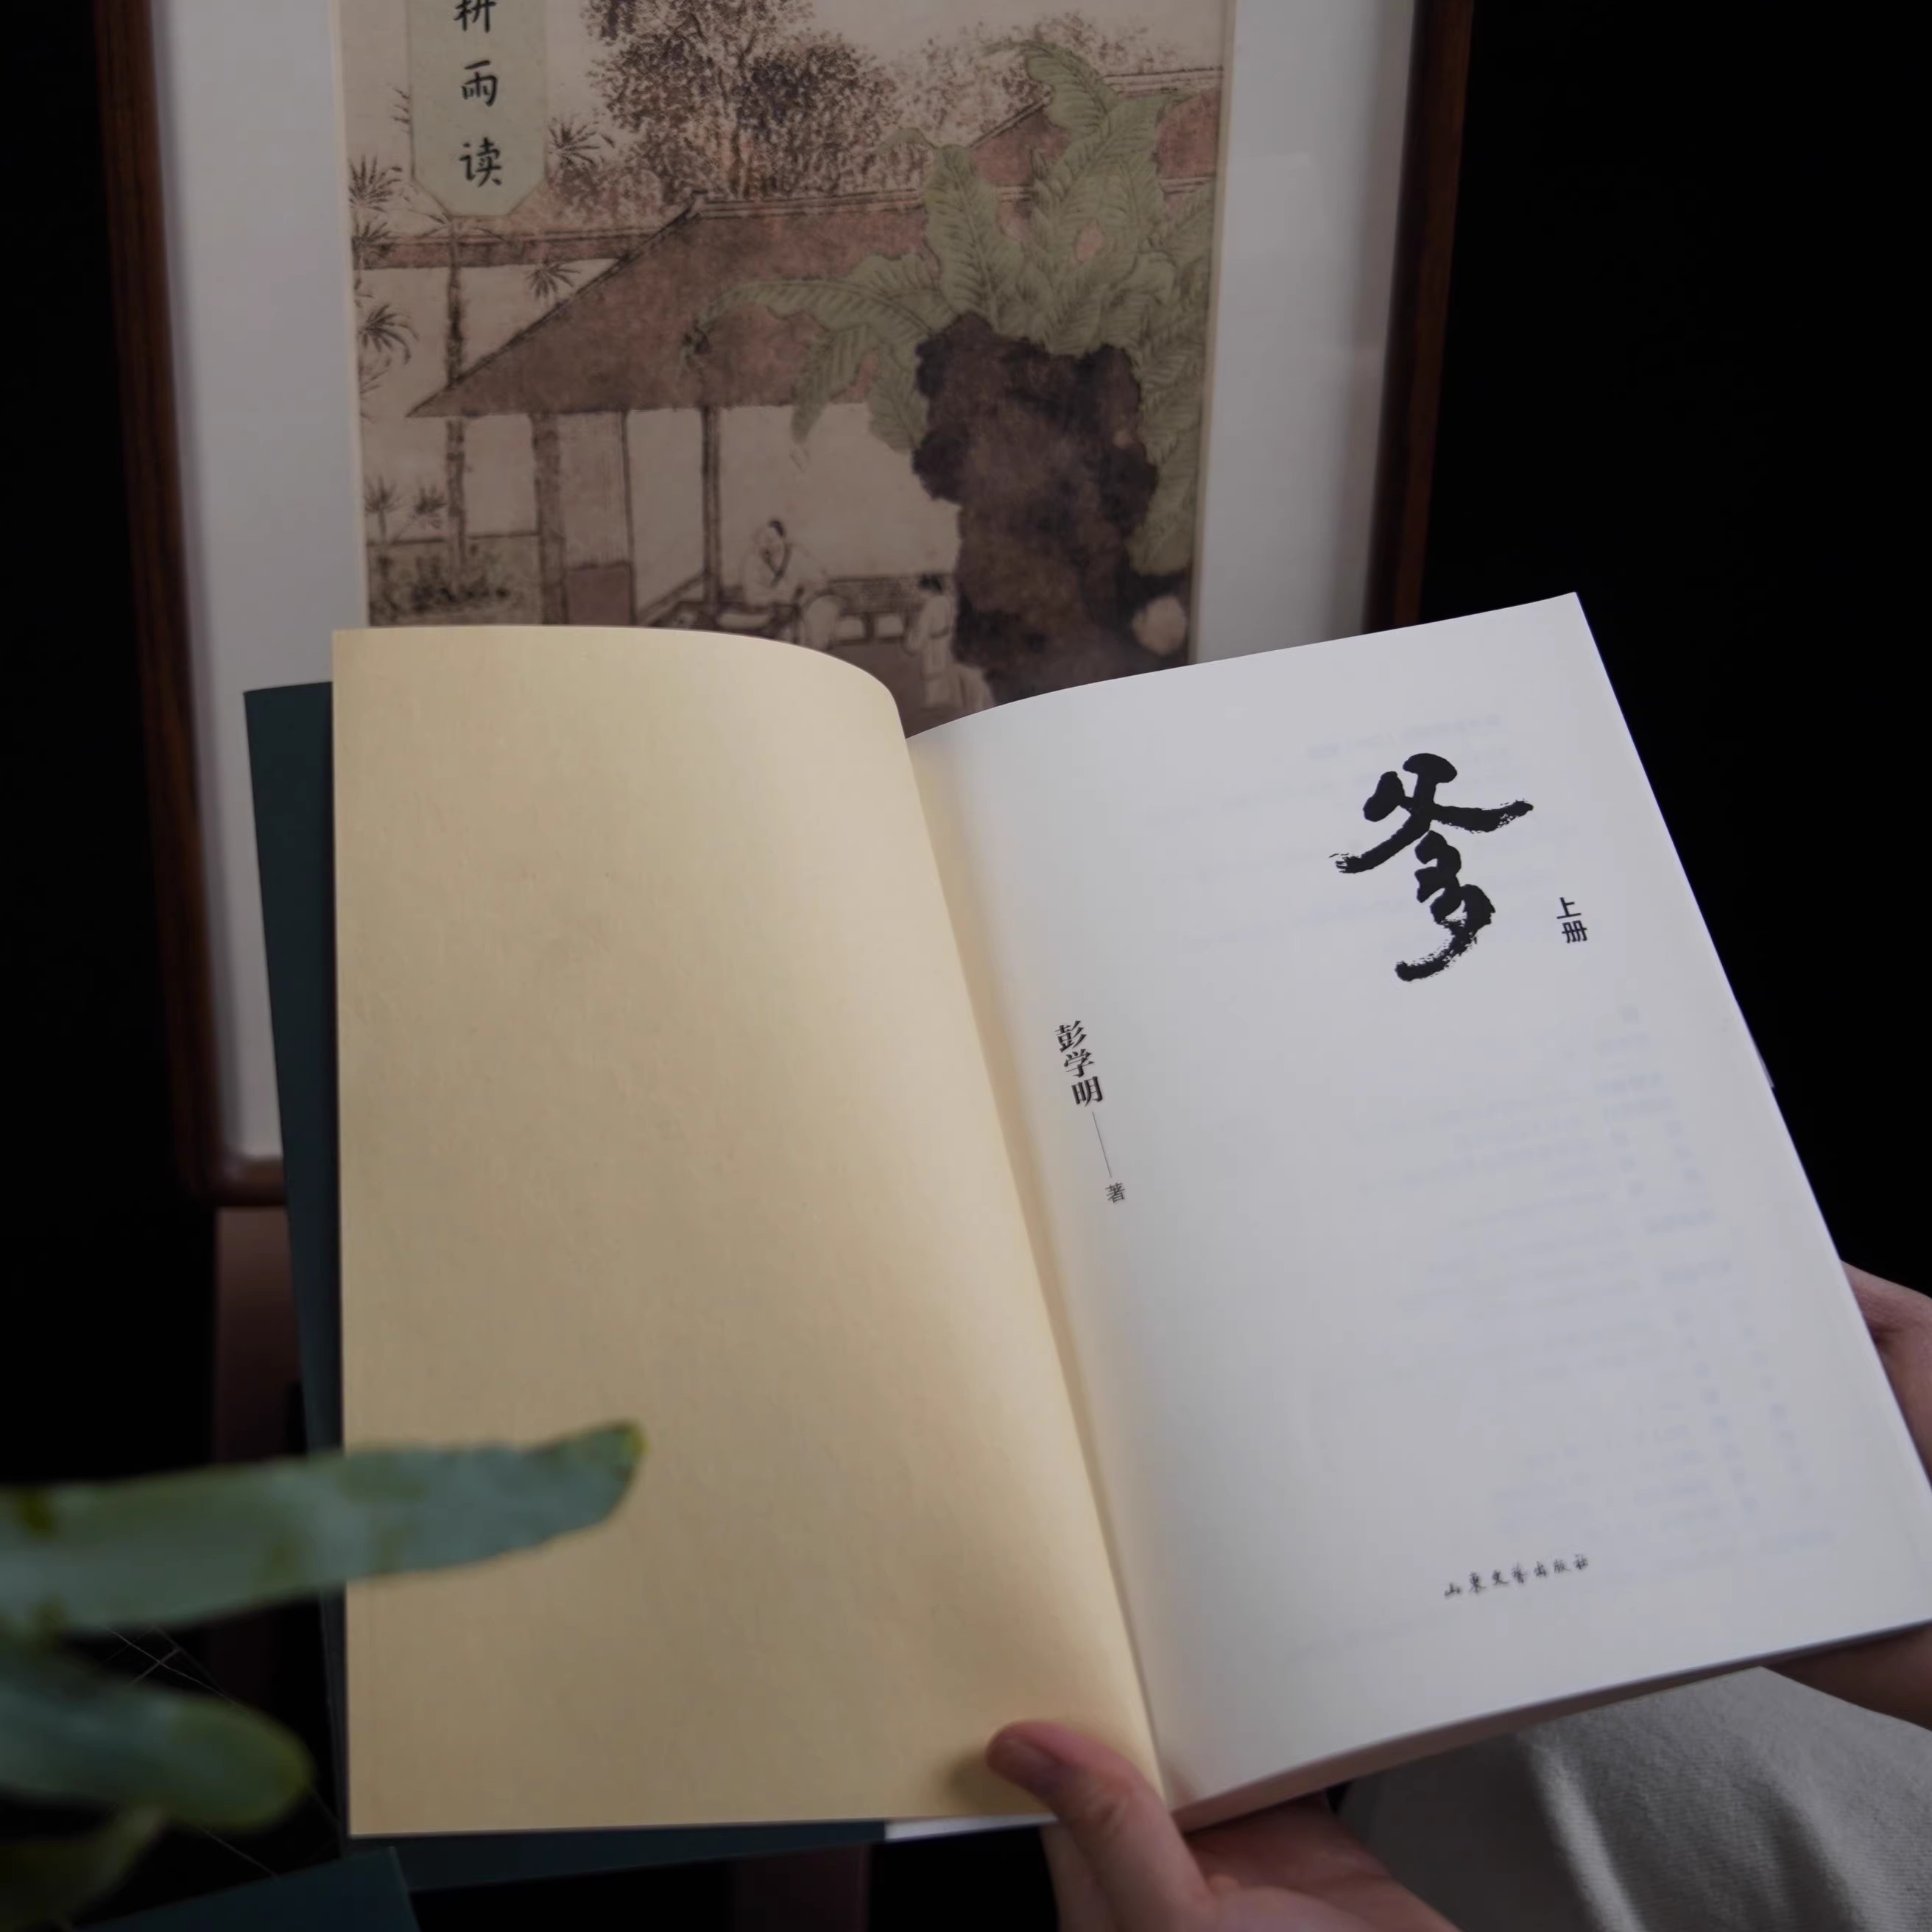 耕
雨
读
爹
上册
彭学明
著
山东文艺出版社